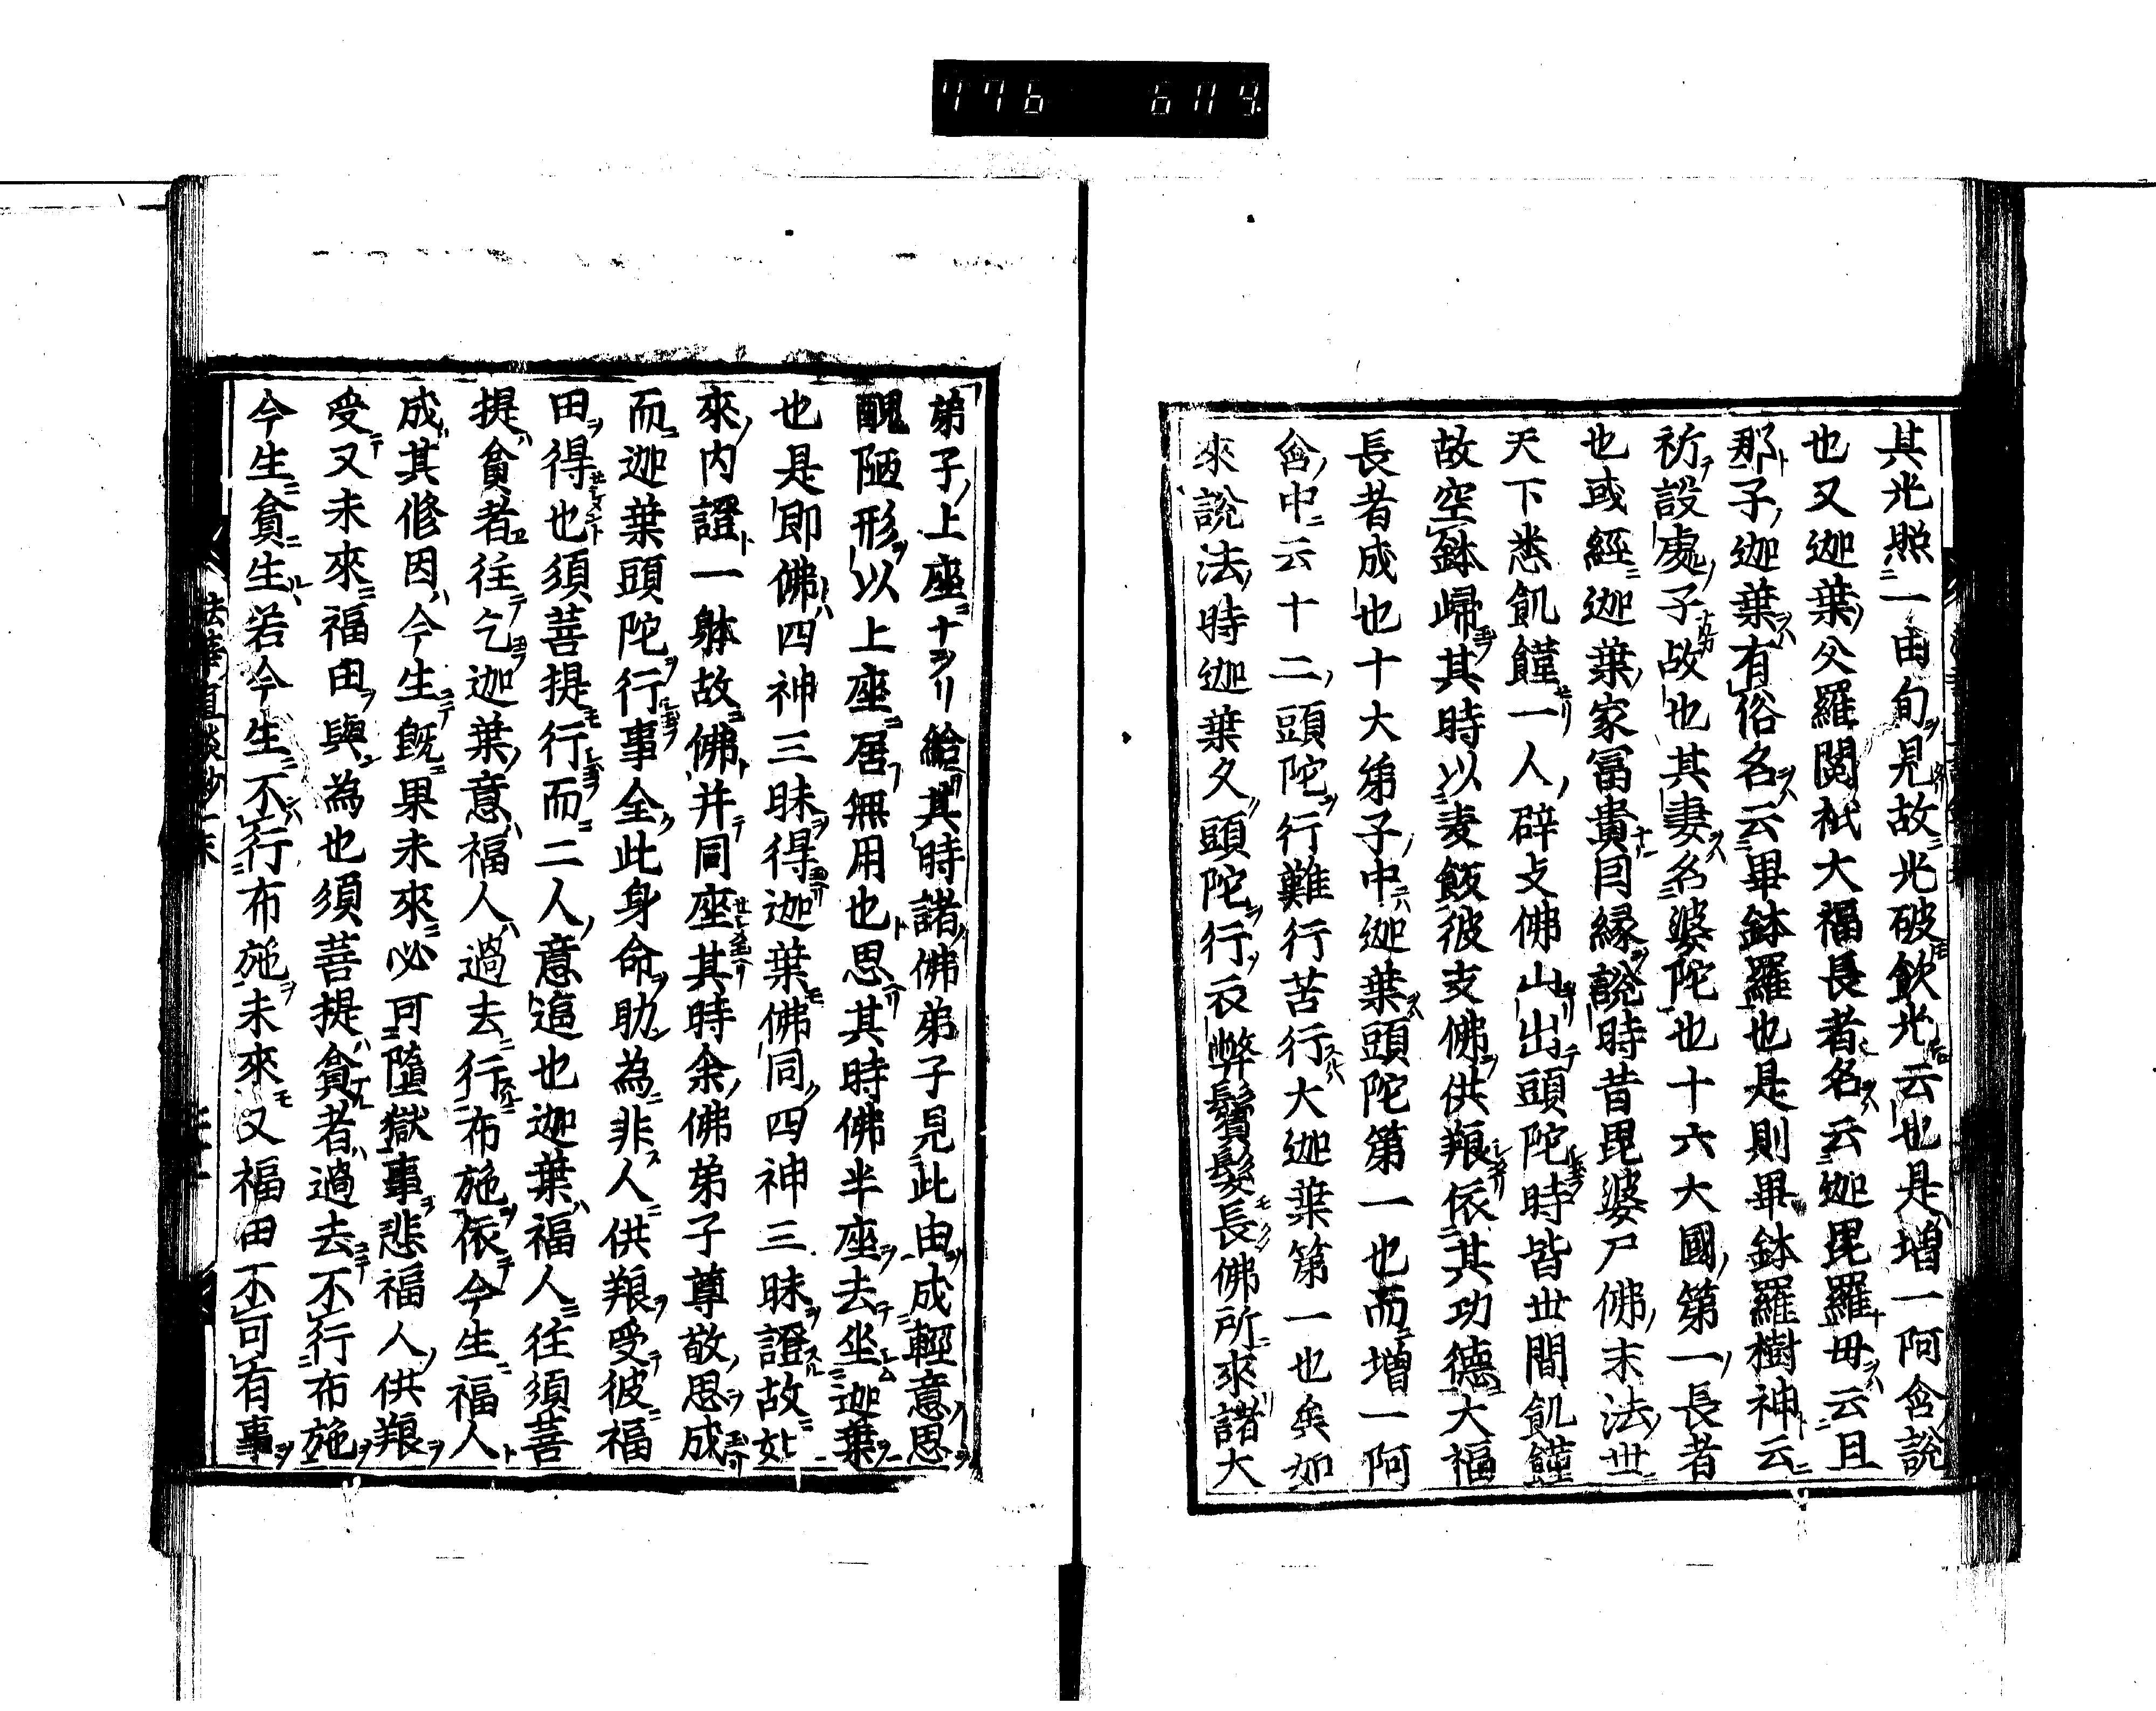 其光照一由旬見故光破飲光云也是増一阿含說
也又迦葉父羅閲祇大福長者名云迦毘羅母云且
那子迦葉有俗名云畢鉢羅也是則畢鉢羅樹神云
祈設處子故也其妻名婆陀也十六大國第一長者
也或經迦葉家冨貴因縁說時昔毘婆尸佛末法世
天下悉飢饉一人辟支佛山出頭陀時皆世間飢饉
故空鉢歸其時以麦飯彼支佛供粮依其功德大福
長者成也十大弟子中迦葉頭陀第一也而増一阿
含中云十二頭陀行難行苦行大迦葉第一也矣如
來說法時迦葉久頭陀行衣弊鬚髮長佛所來諸大
弟子上座ナリ給其時諸佛弟子見此由成輕意思
醜陋形以上座居無用也思其時佛半座去坐迦葉
也是即佛四神三昧得迦葉佛同四神三昧證故如
來内證一躰故佛并同座其時余佛弟子尊敬思成
而迦葉頭陀行事全此身命助為非人供粮受彼福
田得也須菩提行而二人意逅也迦葉福人往須菩
提貧者往乞迦葉意福人過去行布施依今生福人
成其修因今生既果未來必可墮獄事悲福人供粮
受又未來福田與為也須菩提貧者過去不行布施
今生貧生若今生不行布施未來又福田不可有事
法華直談抄一末
776 6114